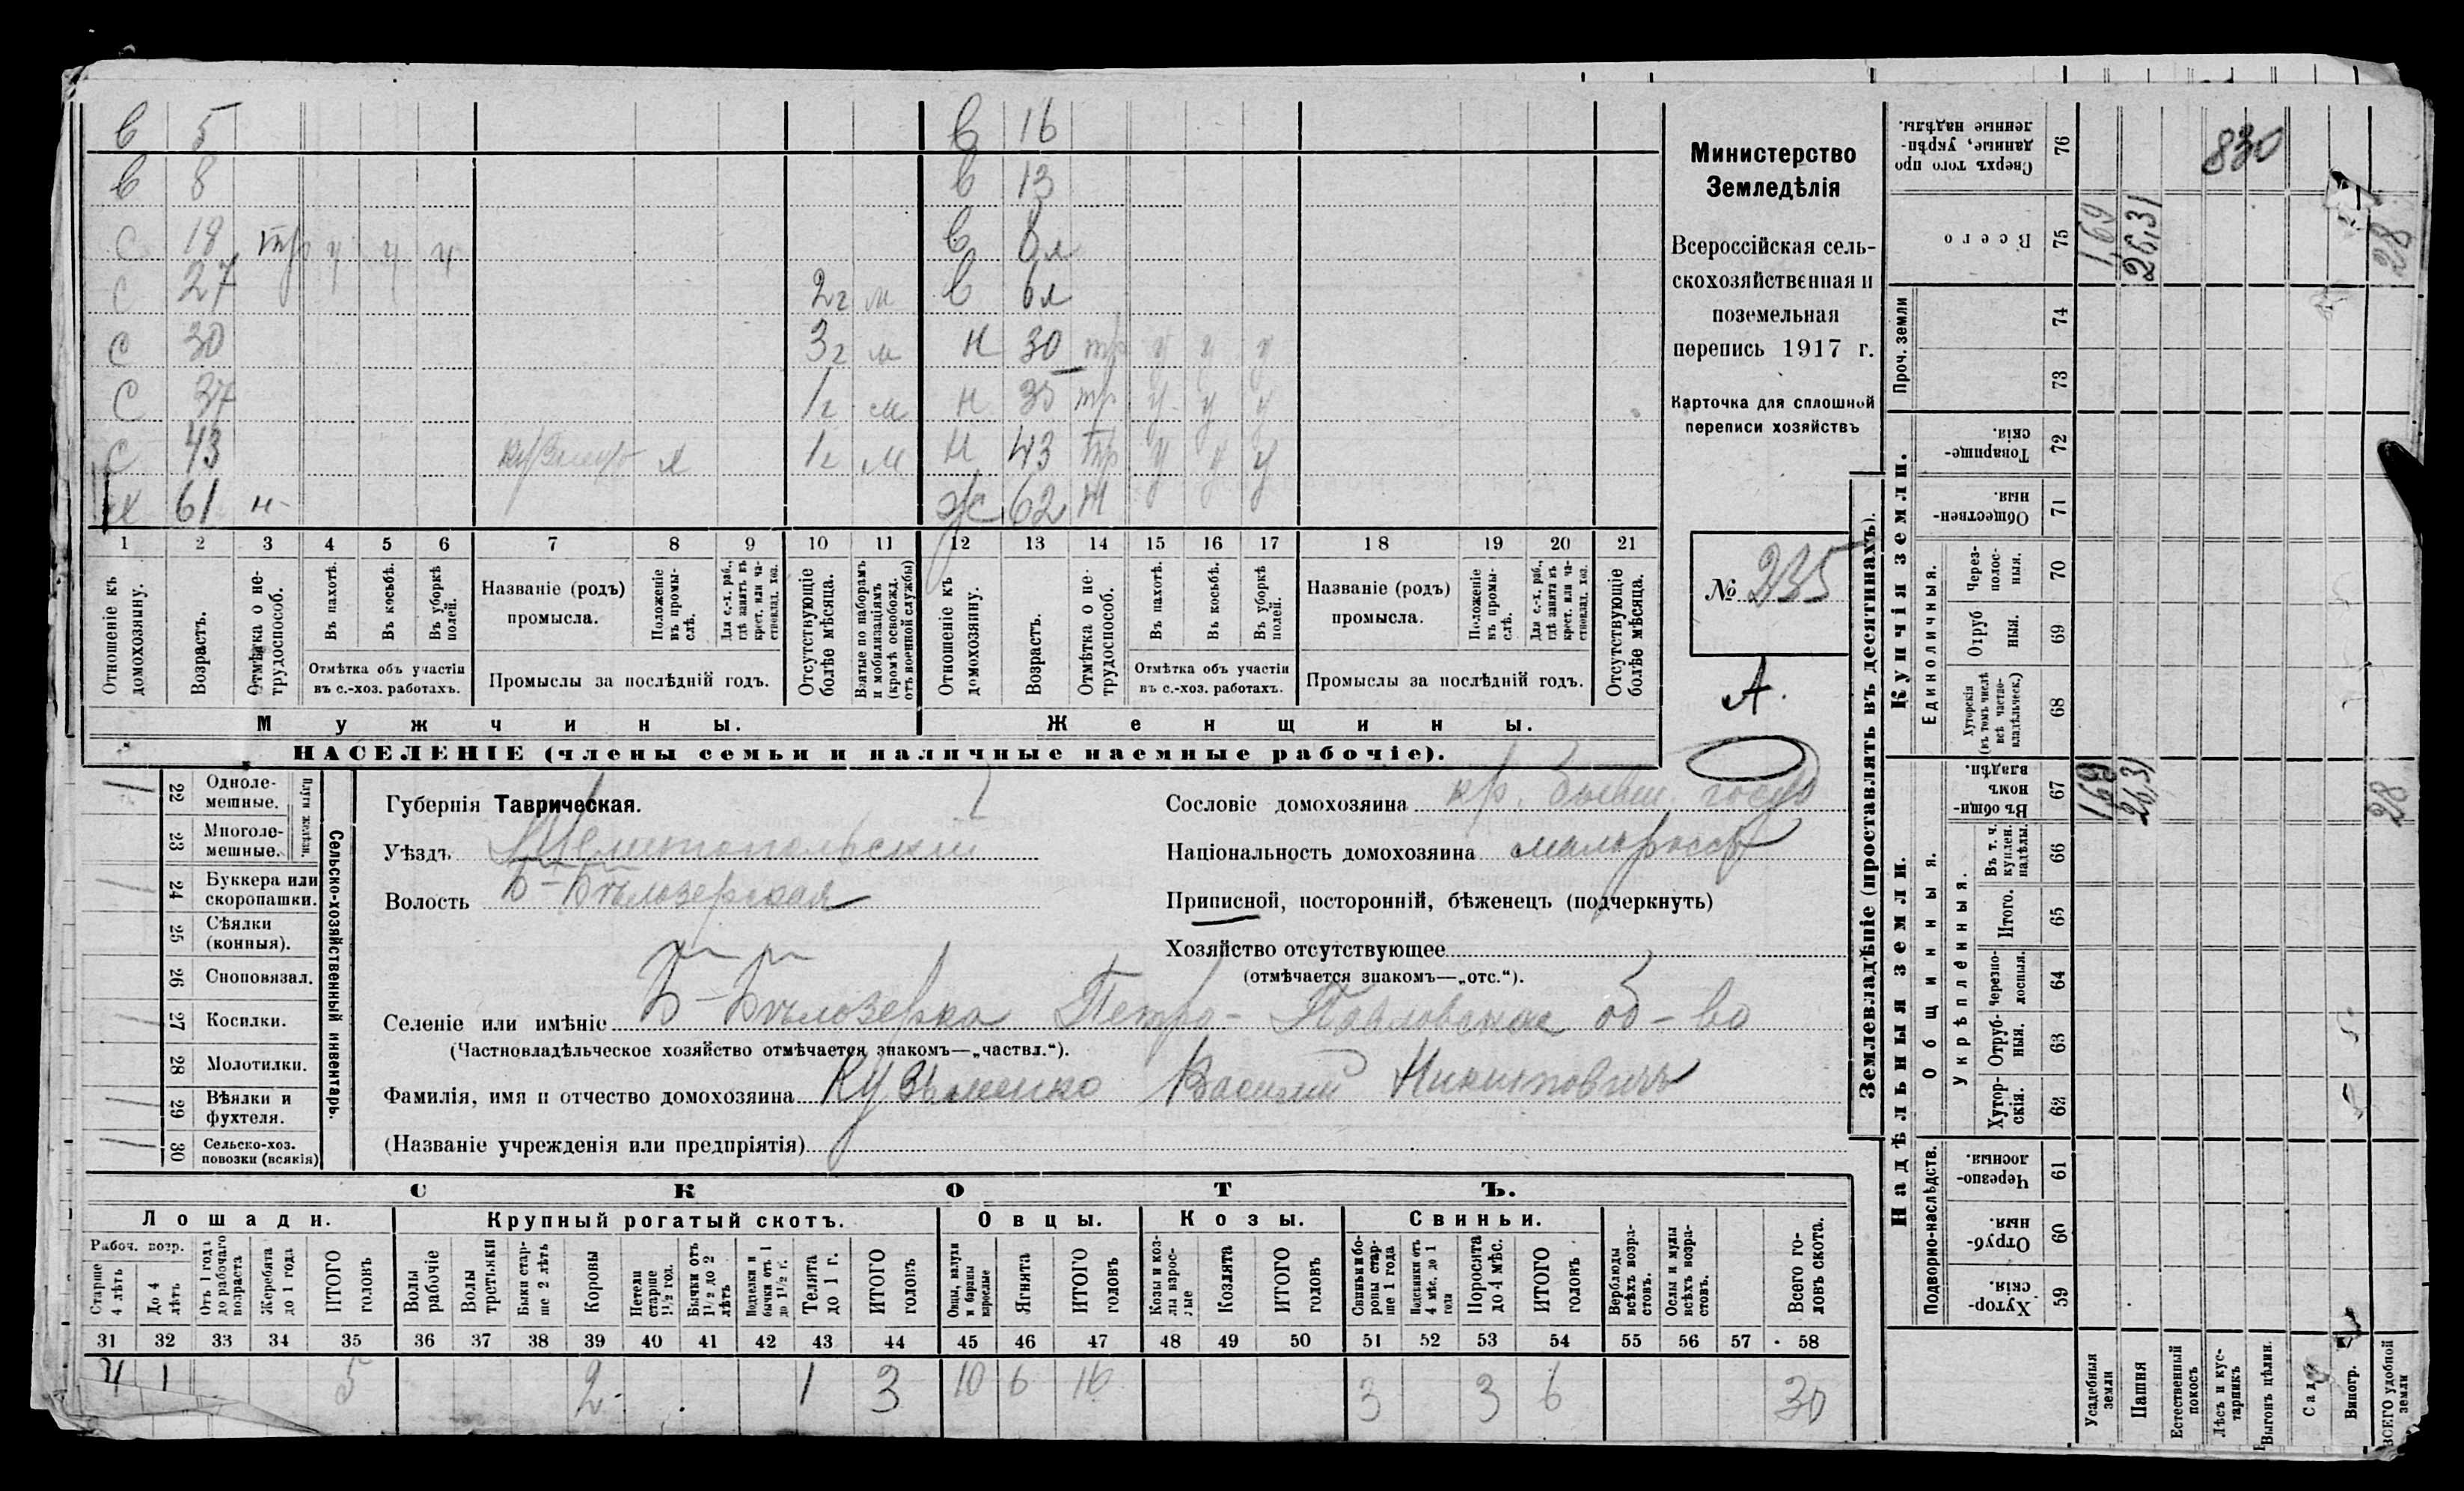 в 5 в 16
в 8 в 13
с 18 тр у у у в 8 л
с 27 2 г м в 6 л
с 30 3 г м н 30 тр у у у
с 37 1 г м н 35 тр у у у
с 43 х 1 г м н 43 тр у у у
х 61 н ж 62 н
1 2 3 4 5 6 7 8 9 10 11 12 13 14 15 16 17 18 19 20 21
Отношеніе къ домохозяину.
Возрастъ.
Отмѣтка о нетрудоспособ.
Въ пахотѣ.
Въ косьбѣ.
Въ уборкѣ полей.
Отмѣтка объ участіи въ с.-хоз. работахъ.
Названіе (родъ) промысла.
Положеніе въ промыслѣ.
Для с.-х. раб., гдѣ занятъ въ крест. или частновлад. хоз.
Промыслы за послѣдній годъ.
Отсутствующіе болѣе мѣсяца.
Взятые по наборамъ и мобилизаціямъ (кромѣ освобожд. отъ военной службы)
Отношеніе къ домохозяину.
Возрастъ.
Отмѣтка о нетрудоспособ.
Въ пахотѣ.
Въ косьбѣ.
Въ уборкѣ полей.
Отмѣтка объ участіи въ с.-хоз. работахъ.
Названіе (родъ) промысла.
Положеніе въ промыслѣ.
Для с.-х. раб., гдѣ занята въ крест. или частновлад. хоз.
Промыслы за послѣдній годъ.
Отсутствующіе болѣе мѣсяца.
Мужчины. Женщины.
НАСЕЛЕНІЕ (члены семьи и наличные наемные рабочіе).
Министерство
Земледѣлія
Всероссійская сель-
скохозяйственная и
поземельная
перепись 1917 г.
Карточка для сплошной
переписи хозяйствъ
№ 235
А.
22 Одноле-мешные.
Плуги желѣзн.
23 Многоле-мешные.
24 Буккера или скоропашки.
25 Сѣялки (конныя).
26 Сноповязал.
27 Косилки.
28 Молотилки.
29 Вѣялки и фухтеля.
30 Сельско-хоз. повозки (всякія)
Сельско-хозяйственный инвентарь.
Губернія Таврическая.
Уѣздъ Мелитопольскій
Волость Б-Бѣлозерская
Сословіе домохозяина кр. бывш. госуд
Національность домохозяина малороссъ
Приписной, посторонній, бѣженецъ (подчеркнуть)
Хозяйство отсутствующее
(отмѣчается знакомъ—„отс.“).
Селеніе или имѣніе Б-Бѣлозерка Петро-Павловское об-во
(Частновладѣльческое хозяйство отмѣчается знакомъ—„частвл.“).
Фамилія, имя и отчество домохозяина Кузьменко Василий Никитовичъ
(Названіе учрежденія или предпріятія)
СКОТЪ.
Лошади. Крупный рогатый скотъ. Овцы. Козы. Свиньи.
Рабоч. возр.
Старше 4 лѣтъ
До 4 лѣтъ
Отъ 1 года до рабочаго возраста
Жеребята до 1 года
ИТОГО головъ
Волы рабочіе
Волы третьяки
Быки старше 2 лѣтъ
Коровы
Нетели старше 1½ год.
Бычки отъ 1½ до 2 лѣтъ
Подтелки и бычки отъ 1 до 1½ г.
Телята до 1 г.
ИТОГО головъ
Овцы, валухи и бараны взрослые
Ягнята
ИТОГО головъ
Козы и козлы взрослые
Козлята
ИТОГО головъ
Свиньи и боровы старше 1 года
Подсвинки отъ 4 мѣс. до 1 года
Поросята до 4 мѣс.
ИТОГО головъ
Верблюды всѣхъ возрастовъ.
Ослы и мулы всѣхъ возрастовъ.
Всего головъ скота.
31 32 33 34 35 36 37 38 39 40 41 42 43 44 45 46 47 48 49 50 51 52 53 54 55 56 57 58
4 1 5 2 1 3 10 6 16 3 3 6 30
Землевладѣніе (проставлять въ десятинахъ).
Купчія земли.
Надѣльныя земли.
Сверхъ того проданные, укрѣпленные надѣлы. 76 830
Всего 75 1,69 26,31 28
Проч. земли 74 73
Товарищескія. 72
Общественныя. 71
Единоличныя.
Черезполосныя. 70
Отрубныя. 69
Хуторскія (въ томъ числѣ всѣ частновладѣльческ.) 68
Общинныя.
Въ общинномъ владѣн. 67 1,69 26,31 28
Въ т. ч. куплен. надѣлы. 66
Укрѣпленныя.
Итого. 65
Черезполосныя. 64
Отрубныя. 63
Хуторскія. 62
Подворно-наслѣдств.
Черезполосныя. 61
Отрубныя. 60
Хуторскія. 59
Усадебныя земли
Пашня
Естественный покосъ
Лѣсъ и кустарникъ
Выгонъ цѣлин.
Сады
Виногр.
ВСЕГО удобной земли